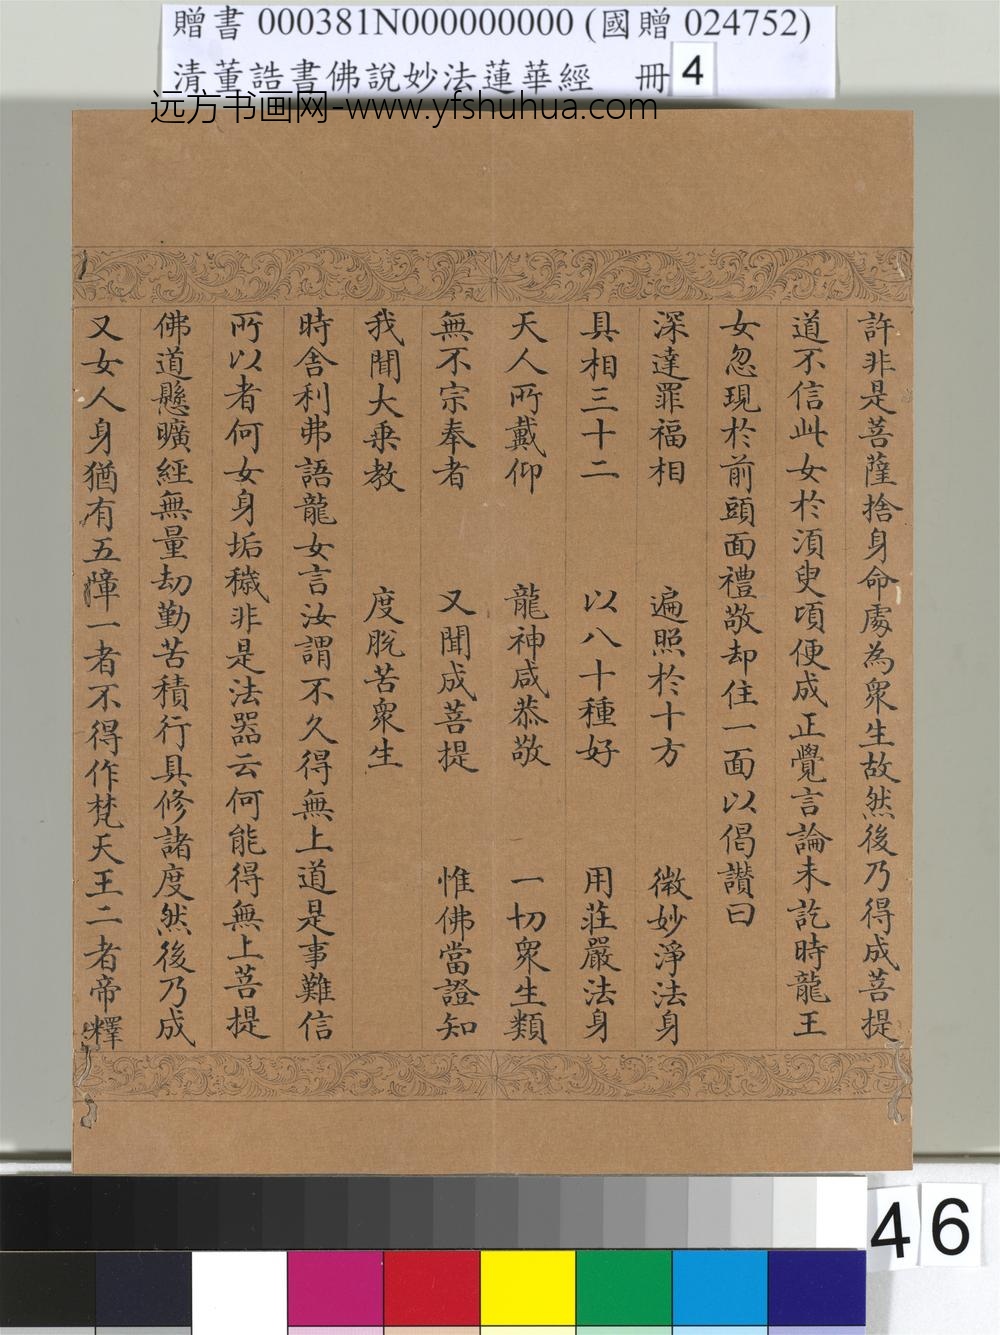 贈書 000381N000000000 (國贈 024752)
清董誥書佛說妙法蓮華經 冊 4
远方书画网-www.yfshuhua.com
許非是菩薩捨身命處為眾生故然後乃得成菩提
道不信此女於須臾頃便成正覺言論未訖時龍王
女忽現於前頭面禮敬却住一面以偈讚曰
深達罪福相 遍照於十方 微妙淨法身
具相三十二 以八十種好 用莊嚴法身
天人所戴仰 龍神咸恭敬 一切眾生類
無不宗奉者 又聞成菩提 惟佛當證知
我聞大乘教 度脫苦眾生
時舍利弗語龍女言汝謂不久得無上道是事難信
所以者何女身垢穢非是法器云何能得無上菩提
佛道懸曠經無量劫勤苦積行具修諸度然後乃成
又女人身猶有五障一者不得作梵天王二者帝釋
46